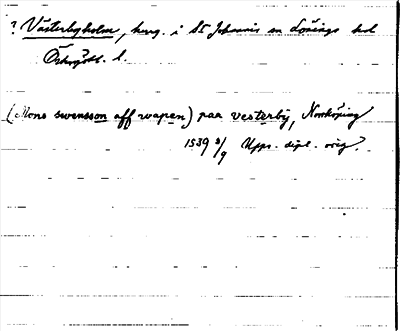 ? Västerbyholm, herrg. i St Johannis sn Lösings hd
Östergötl. l.
(Mons swensson aff wapen) paa vesterby, Norrköping
1539 8/9 Upps. dipl. orig.